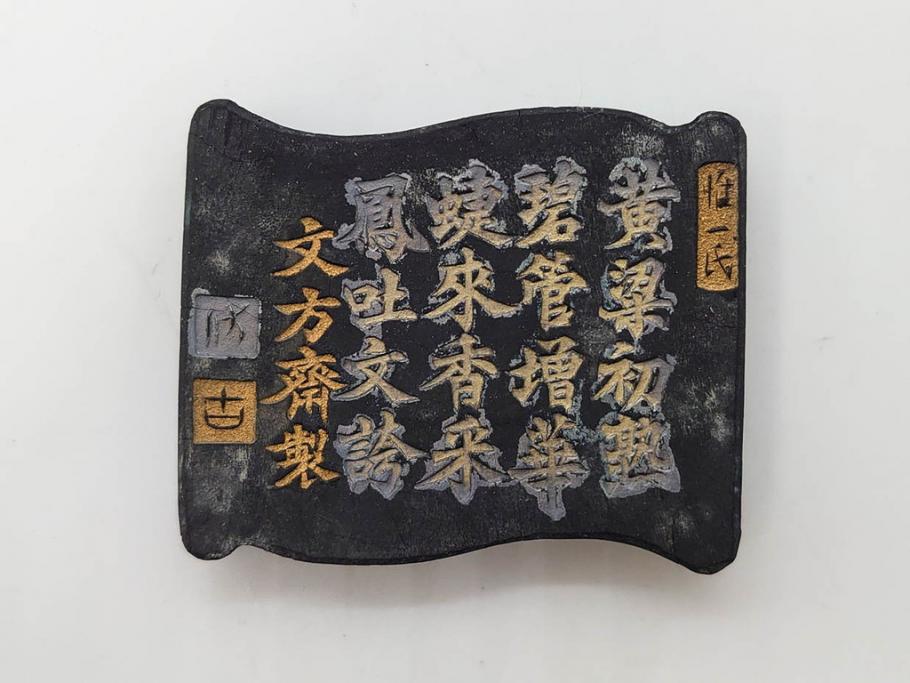 一氏
黃粱初熟
碧管增華
蜨來香采
鳳吐文誇
文方齋製
古